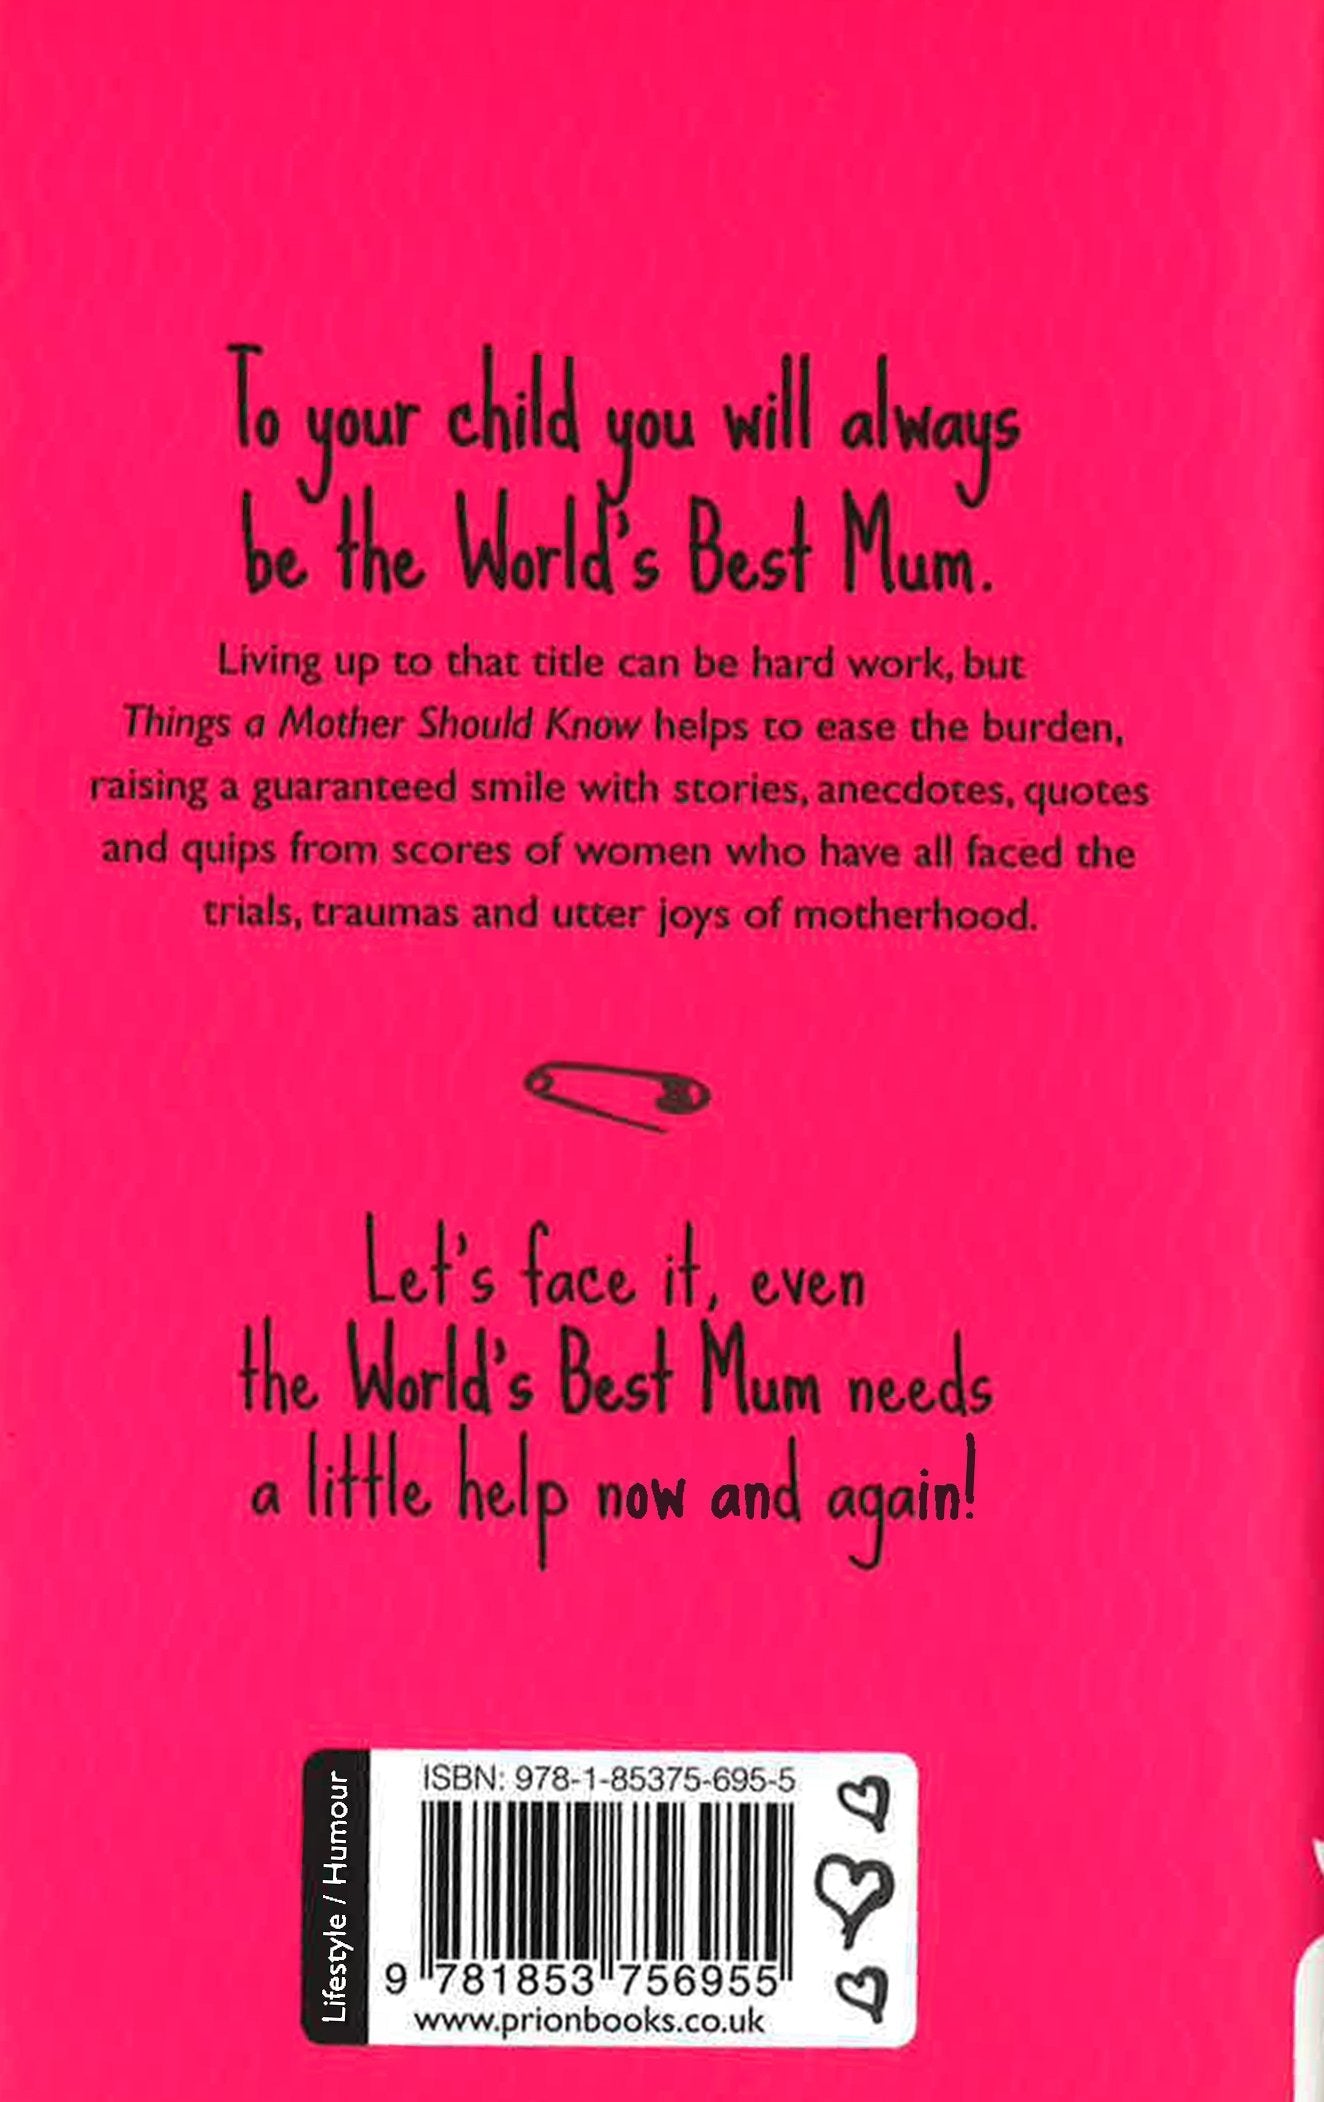 To your child you will always
be the World's Best Mum.
Living up to that title can be hard work, but
Things a Mother Should Know helps to ease the burden,
raising a guaranteed smile with stories, anecdotes, quotes
and quips from scores of women who have all faced the
trials, traumas and utter joys of motherhood.
Let's face it, even
the World's Best Mum needs
a little help now and again!
Lifestyle / Humour
ISBN: 978-1-85375-695-5
9 781853 756955
www.prionbooks.co.uk